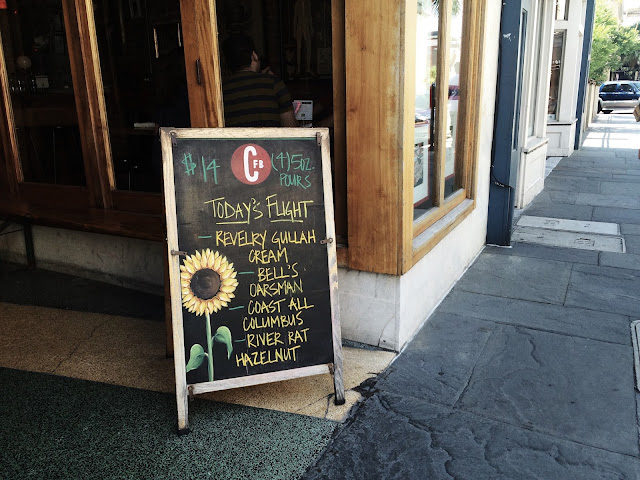 $14
C
FB
(4) 5oz.
POURS
TODAY'S FLIGHT
- REVELRY GULLAH
CREAM
- BELL'S
OARSMAN
- COAST ALL
COLUMBUS
- RIVER RAT
HAZELNUT